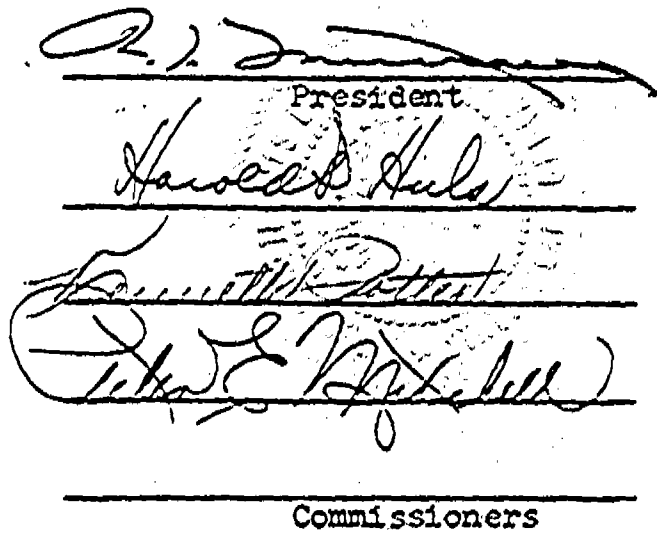 President
Harold P Huls
Kenneth Potter
Peter E Mitchell
Commissioners